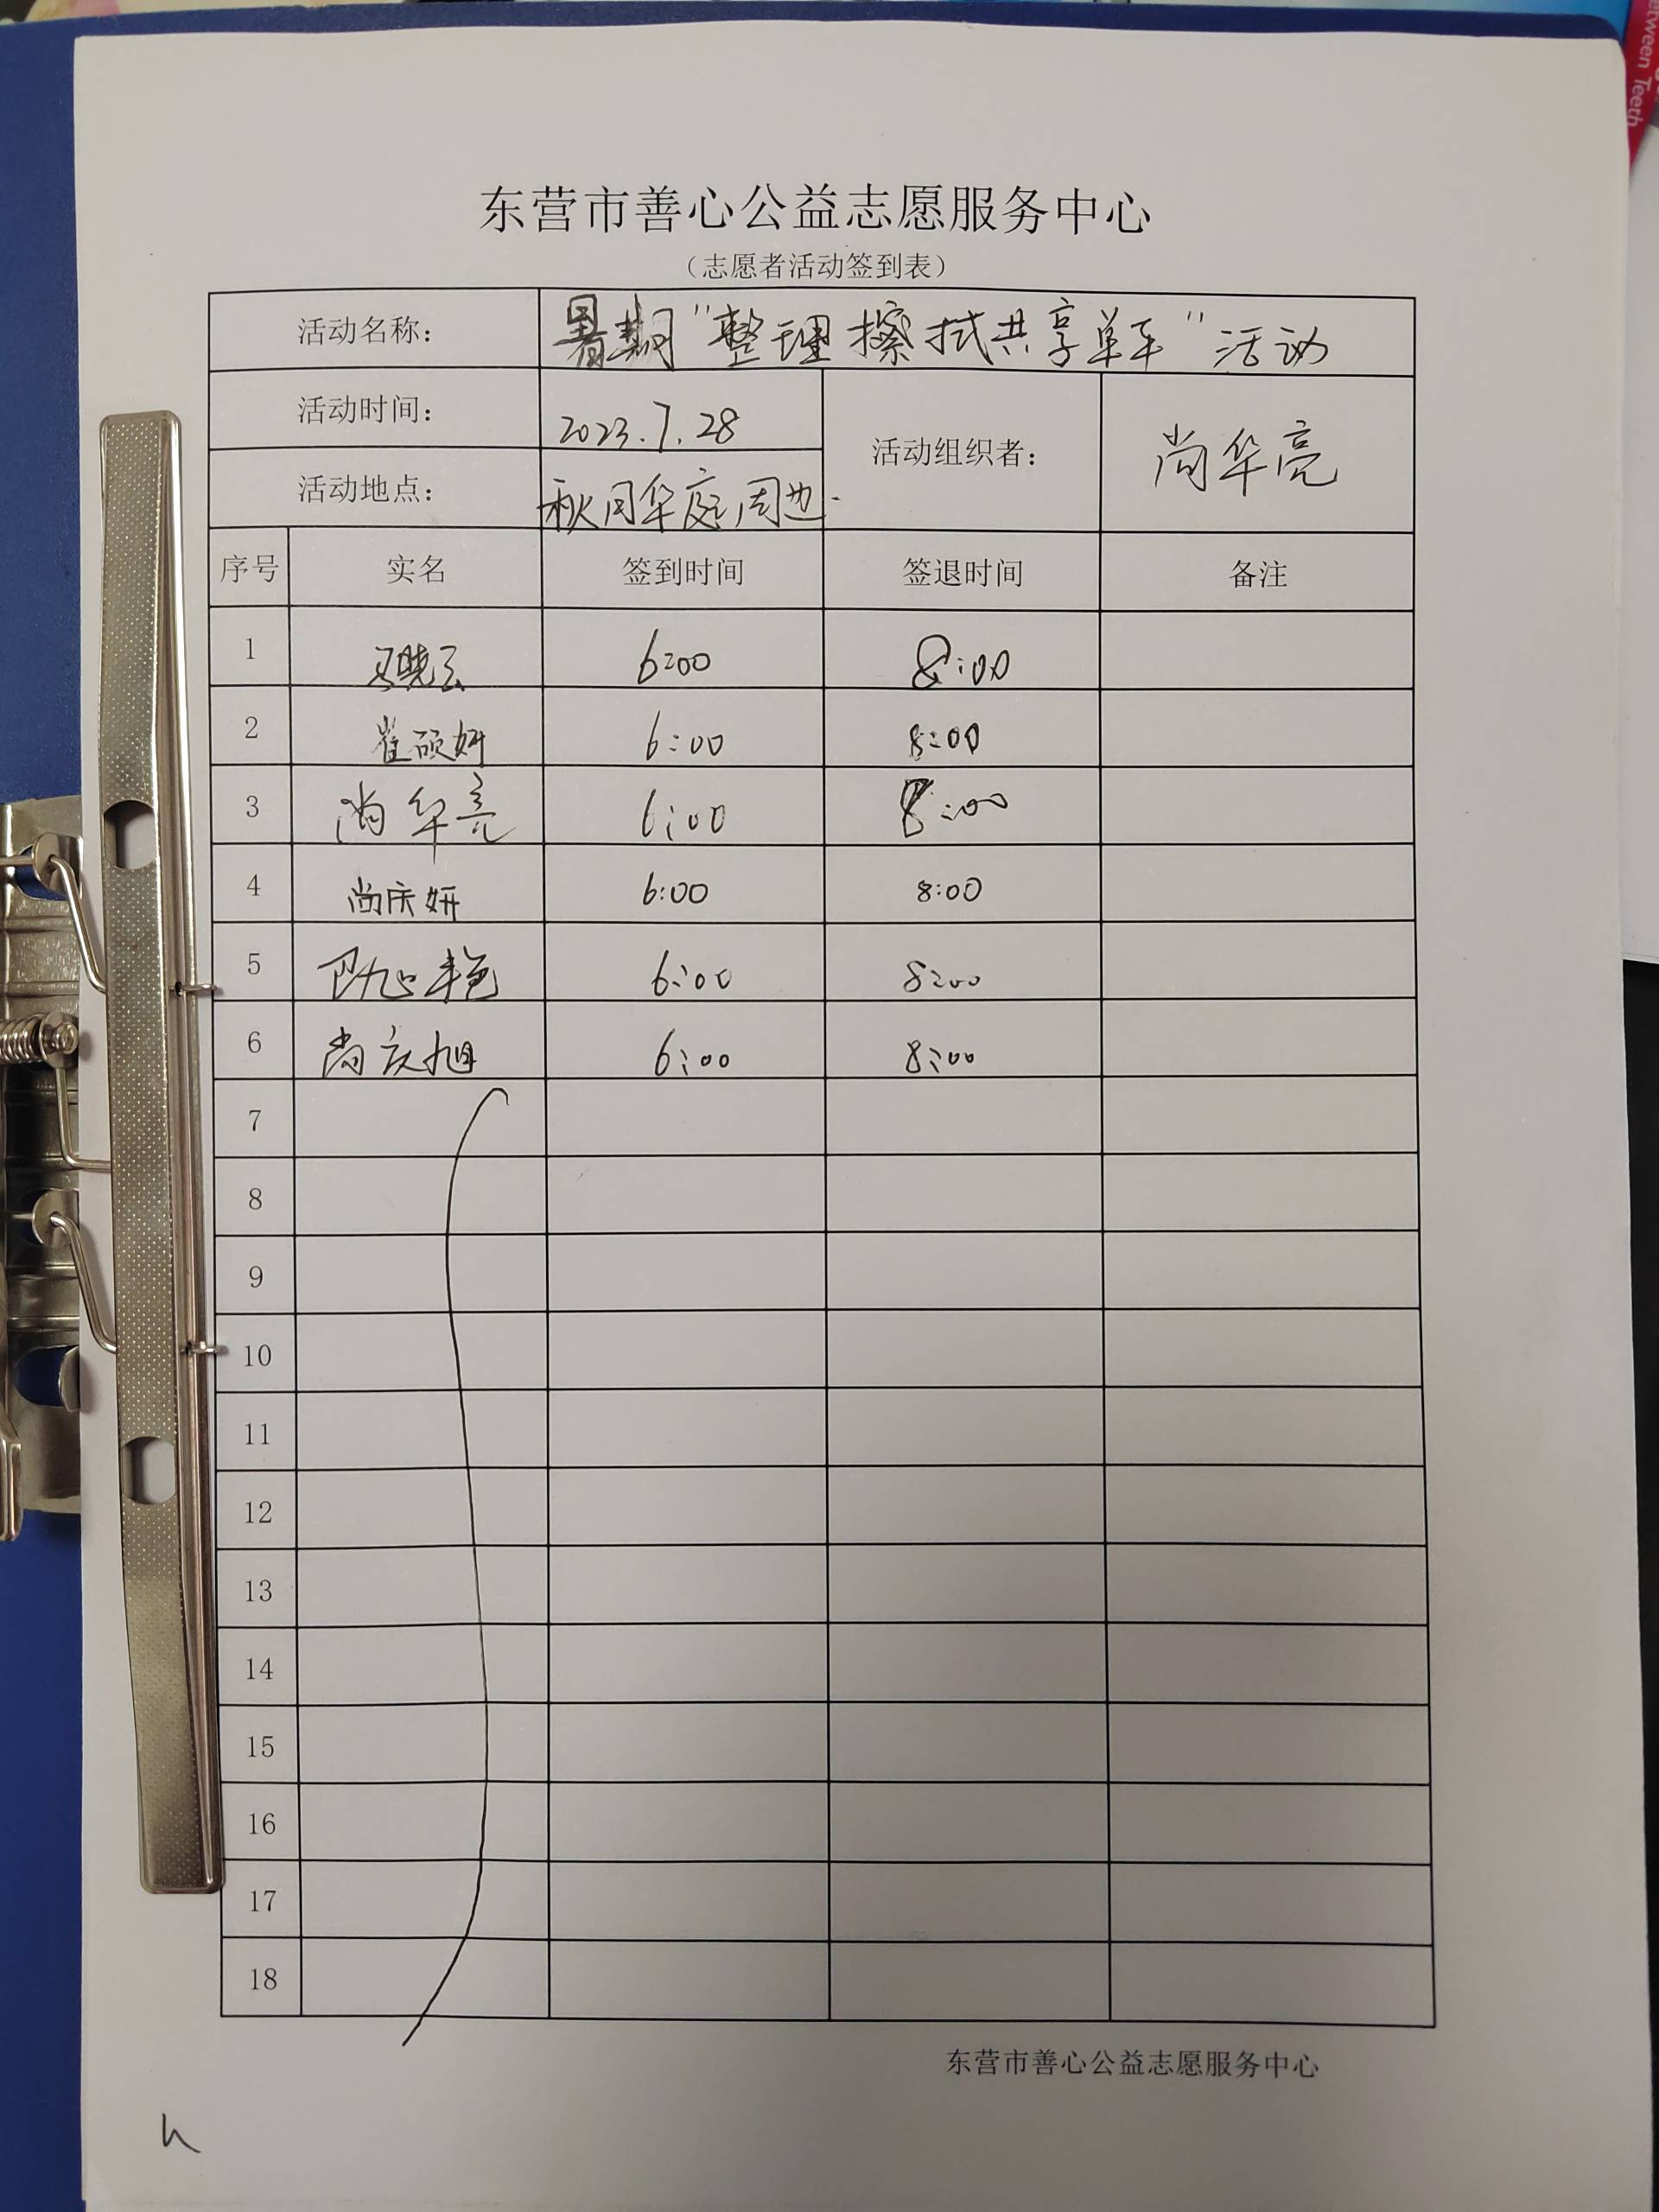 东营市善心公益志愿服务中心
（志愿者活动签到表）
活动名称： 暑期“整理擦拭共享单车”活动
活动时间： 2023.7.28 活动组织者： 尚华亮
活动地点： 秋月华庭周边.
序号 实名 签到时间 签退时间 备注
1 马晓云 6:00 8:00
2 崔硕妍 6:00 8:00
3 尚华亮 6:00 8:00
4 尚庆妍 6:00 8:00
5 6:00 8:00
6 尚庆旭 6:00 8:00
7
8
9
10
11
12
13
14
15
16
17
18
东营市善心公益志愿服务中心
between Teeth